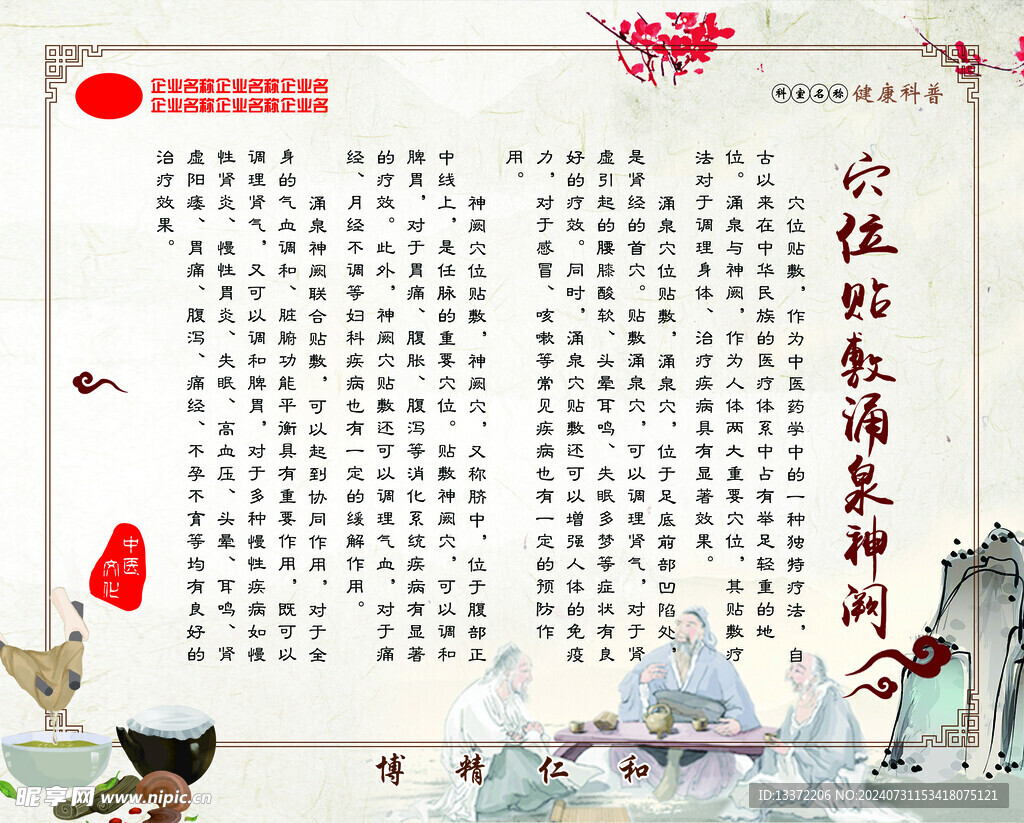 企业名称企业名称企业名
企业名称企业名称企业名
科室名称 健康科普
穴位贴敷涌泉神阙
穴位贴敷，作为中医药学中的一种独特疗法，自
古以来在中华民族的医疗体系中占有举足轻重的地
位。涌泉与神阙，作为人体两大重要穴位，其贴敷疗
法对于调理身体、治疗疾病具有显著效果。
涌泉穴位贴敷，涌泉穴，位于足底前部凹陷处，
是肾经的首穴。贴敷涌泉穴，可以调理肾气，对于肾
虚引起的腰膝酸软、头晕耳鸣、失眠多梦等症状有良
好的疗效。同时，涌泉穴贴敷还可以增强人体的免疫
力，对于感冒、咳嗽等常见疾病也有一定的预防作
用。
神阙穴位贴敷，神阙穴，又称脐中，位于腹部正
中线上，是任脉的重要穴位。贴敷神阙穴，可以调和
脾胃，对于胃痛、腹胀、腹泻等消化系统疾病有显著
的疗效。此外，神阙穴贴敷还可以调理气血，对于痛
经、月经不调等妇科疾病也有一定的缓解作用。
涌泉神阙联合贴敷，可以起到协同作用，对于全
身的气血调和、脏腑功能平衡具有重要作用，既可以
调理肾气，又可以调和脾胃，对于多种慢性疾病如慢
性肾炎、慢性胃炎、失眠、高血压、头晕、耳鸣、肾
虚阳痿、胃痛、腹泻、痛经、不孕不育等均有良好的
治疗效果。
中医
文化
博精仁和
昵享网 www.nipic.cn
ID:13372206 NO:20240731153418075121